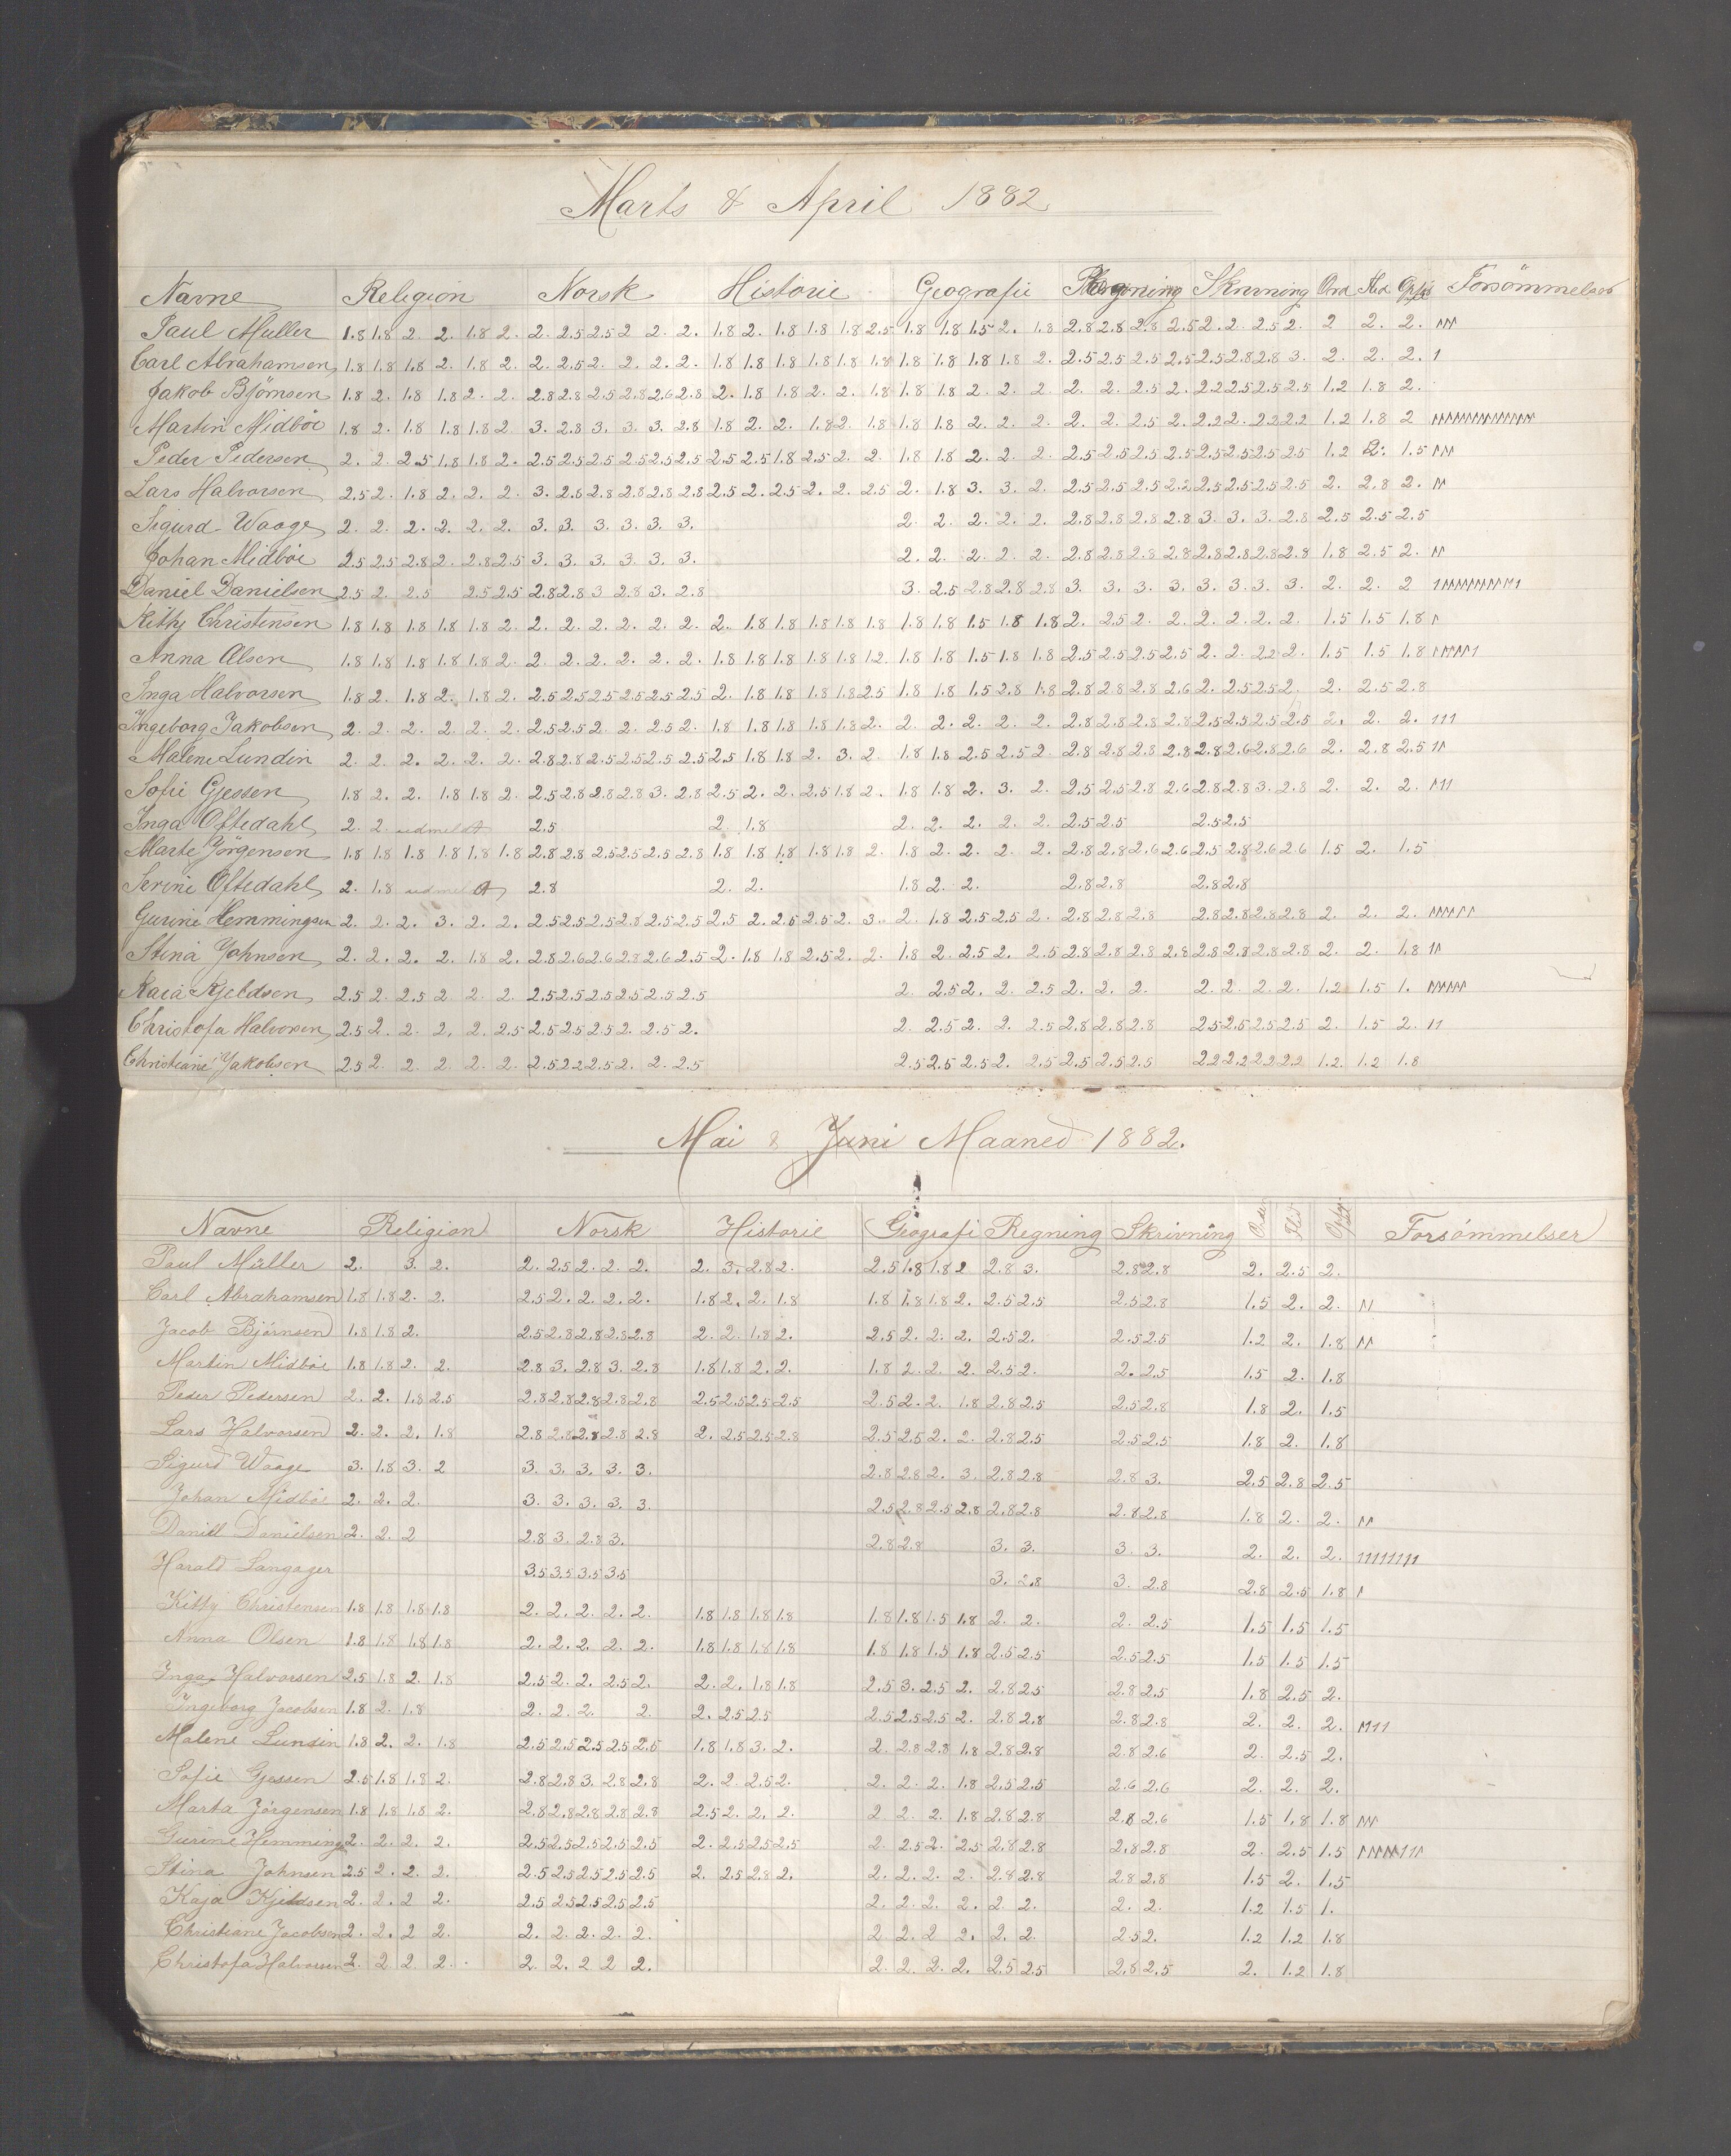 Marts & April 1882
Navne Religion Norsk Historie Geografie Regning Skrivning Ord Flid Opfø Forsömmelser
Paul Müller 1.8 1.8 2. 2. 1.8 2. 2. 2.5 2.5 2 2. 2. 1.8 2. 1.8 1.8 1.8 2.5 1.8 1.8 1.5 2. 1.8 2.8 2.8 2.8 2.5 2. 2. 2.5 2. 2 2. 2.
Carl Abrahamsen 1.8 1.8 1.8 2. 1.8 2. 2. 2.5 2. 2. 2. 2. 1.8 1.8 1.8 1.8 1.8 1.8 1.8 1.8 1.8 1.8 2. 2.5 2.5 2.5 2.5 2.5 2.8 2.8 3. 2. 2. 2.
Jakob Björnsen 1.8 2. 1.8 1.8 2. 2. 2.8 2.8 2.5 2.8 2.6 2.8 2. 1.8 1.8 2. 2. 1.8 1.8 1.8 2. 2. 2. 2. 2. 2.5 2. 2.2 2.5 2.5 2.5 1.2 1.8 2.
Martin Midböe 1.8 2. 1.8 1.8 1.8 2. 3. 2.8 3. 3. 3. 2.8 1.8 2. 2. 1.8 2. 1.8 1.8 1.8 2. 2. 2. 2. 2. 2.5 2. 2.2 2. 2.2 2.2 1.2 1.8 2
Peder Pedersen 2. 2. 2.5 1.8 1.8 2. 2.5 2.5 2.5 2.5 2.5 2.5 2.5 2.5 1.8 2.5 2. 2. 1.8 1.8 2. 2. 2. 2.5 2.5 2.5 2.5 2.5 2.5 2.5 2.5 1.2 2. 1.5
Lars Halvorsen 2.5 2. 1.8 2. 2. 2. 3. 2.8 2.8 2.8 2.8 2.8 2.5 2. 2.5 2. 2. 2.5 2. 1.8 3. 3. 2. 2.5 2.5 2.5 2.2 2.5 2.5 2.5 2.5 2. 2.8 2.
Sigurd Waage 2. 2. 2. 2. 2. 2. 3. 3. 3. 3. 3. 3. 2. 2. 2. 2. 2. 2.8 2.8 2.8 2.8 3. 3. 3. 2.8 2.5 2.5 2.5
Johan Midböe 2.5 2.5 2.8 2. 2.8 2.5 3. 3. 3. 3. 3. 3. 2. 2. 2. 2. 2. 2.8 2.8 2.8 2.8 2.8 2.8 2.8 2.8 1.8 2.5 2.
Daniel Danielsen 2.5 2. 2.5 2.5 2.5 2.8 2.8 3 2.8 3. 2.8 3. 2.5 2.8 2.8 2.8 3. 3. 3. 3. 3. 3. 3. 3. 2. 2. 2
Kitty Christensen 1.8 1.8 1.8 1.8 1.8 2. 2. 2. 2. 2. 2. 2. 2. 1.8 1.8 1.8 1.8 1.8 1.8 1.8 1.5 1.8 1.8 2. 2.5 2. 2. 2. 2. 2. 2. 1.5 1.5 1.8
Anna Olsen 1.8 1.8 1.8 1.8 1.8 2. 2. 2. 2. 2. 2. 2. 1.8 1.8 1.8 1.8 1.8 1.2 1.8 1.8 1.5 1.8 1.8 2.5 2.5 2.5 2.5 2. 2. 2.2 2. 1.5 1.5 1.8
Inga Halvorsen 1.8 2. 1.8 2. 1.8 2. 2.5 2.5 2.5 2.5 2.5 2.5 2. 1.8 1.8 1.8 1.8 2.5 1.8 1.8 1.5 2.8 1.8 2.8 2.8 2.8 2.6 2. 2.5 2.5 2. 2. 2.5 2.8
Ingeborg Jakobsen 2. 2. 2. 2. 2. 2. 2.5 2.5 2. 2. 2.5 2. 1.8 1.8 1.8 1.8 1.8 2. 2. 2. 2. 2. 2. 2.8 2.8 2.8 2.8 2.5 2.5 2.5 2.5 2. 2. 2.
Malene Lundin 2. 2. 2. 2. 2. 2. 2.8 2.8 2.5 2.5 2.5 2.5 2.5 1.8 1.8 2. 3. 2. 1.8 1.8 2.5 2.5 2. 2.8 2.8 2.8 2.8 2.8 2.6 2.8 2.6 2. 2.8 2.5
Sofie Gjessen 1.8 2. 2. 1.8 1.8 2. 2.5 2.8 2.8 2.8 3. 2.8 2.5 2. 2. 2.5 1.8 2. 1.8 1.8 2. 3. 2. 2.5 2.5 2.8 2.6 2.8 2.8 3. 2.8 2. 2. 2.
Inga Oftedahl 2. 2 udmeldt 2.5 2. 1.8 2. 2. 2. 2. 2. 2.5 2.5 2.5 2.5
Marte Jörgensen 1.8 1.8 1.8 1.8 1.8 1.8 2.8 2.8 2.5 2.5 2.5 2.8 1.8 1.8 1.8 1.8 1.8 2. 1.8 2. 2. 2. 2. 2.8 2.8 2.6 2.6 2.5 2.8 2.6 2.6 1.5 2. 1.5
Serine Oftedahl 2. 1.8 udmeldt 2.8 2. 2. 1.8 2. 2. 2.8 2.8 2.8 2.8
Gurine Hemmingsen 2. 2. 2. 3. 2. 2. 2.5 2.5 2.5 2.8 2.5 2.5 2.5 2. 2.5 2.5 2. 3. 2. 1.8 2.5 2.5 2. 2.8 2.8 2.8 2.8 2.8 2.8 2.8 2. 2. 2.
Stina Johnsen 2. 2. 2. 2. 1.8 2. 2.8 2.6 2.6 2.8 2.6 2.5 2. 1.8 1.8 2.5 2. 2. 1.8 2. 2.5 2. 2.5 2.8 2.8 2.8 2.8 2.8 2.8 2.8 2.8 2. 2. 1.8
Kaia Kjeldsen 2.5 2. 2.5 2. 2. 2. 2.5 2.5 2.5 2.5 2.5 2.5 2. 2.5 2. 2. 2.5 2. 2. 2. 2. 2. 2. 2. 1.2 1.5 1.
Christofa Halvorsen 2.5 2. 2. 2. 2. 2.5 2.5 2.5 2.5 2. 2.5 2. 2. 2.5 2. 2. 2.5 2.8 2.8 2.8 2.5 2.5 2.5 2.5 2. 1.5 2.
Christiane Jakobsen 2.5 2. 2. 2. 2. 2. 2.5 2.2 2.5 2. 2. 2.5 2.5 2.5 2.5 2. 2.5 2.5 2.5 2.5 2.2 2.2 2.2 2.2 1.2. 1.2 1.8
Mai & Juni Maaned 1882.
Navne Religion Norsk Historie Geografi Regning Skrivning Orden Flid Opfø Forsömmelser
Paul Müller 2. 3. 2. 2. 2.5 2. 2. 2. 2. 3. 2.8 2. 2.5 1.8 1.8 2 2.8 3. 2.8 2.8 2. 2.5 2.
Carl Abrahamsen 1.8 1.8 2. 2. 2.5 2. 2. 2. 2. 1.8 2. 2. 1.8 1.8 1.8 1.8 2. 2.5 2.5 2.5 2.8 1.5 2. 2.
Jacob Björnsen 1.8 1.8 2. 2.5 2.8 2.8 2.8 2.8 2. 2. 1.8 2. 2.5 2. 2. 2. 2.5 2. 2.5 2.5 1.2 2. 1.8
Martin Midböe 1.8 1.8 2. 2. 2.8 3. 2.8 3. 2.8 1.8 1.8 2. 2. 1.8 2. 2. 2. 2.5 2. 2. 2.5 1.5 2. 1.8
Peder Pedersen 2. 2. 1.8 2.5 2.8 2.8 2.8 2.8 2.8 2.5 2.5 2.5 2.5 2.5 2. 2. 1.8 2.8 2.5 2.5 2.8 1.8 2. 1.5
Lars Halvorsen 2. 2. 2. 1.8 2.8 2.8 2.8 2.8 2.8 2. 2.5 2.5 2.8 2.5 2.5 2. 2. 2.8 2.5 2.5 2.5 1.8 2. 1.8
Sigurd Waage 3. 1.8 3. 2 3. 3. 3. 3. 3. 2.8 2.8 2. 3. 2.8 2.8 2.8 3. 2.5 2.8 2.5
Johan Midböe 2. 2. 2. 3. 3. 3. 3. 3. 2.5 2.8 2.5 2.8 2.8 2.8 2.8 2.8 1.8 2. 2.
Daniel Danielsen 2. 2. 2 2.8 3. 2.8 3. 2.8 2.8 3. 3. 3. 3. 2. 2. 2.
Harald Langager 3.5 3.5 3.5 3.5 3. 2.8 3. 2.8 2.8 2.5 1.8
Kitty Christensen 1.8 1.8 1.8 1.8 2. 2. 2. 2. 2. 1.8 1.8 1.8 1.8 1.8 1.8 1.5 1.8 2. 2. 2. 2.5 1.5 1.5 1.5
Anna Olsen 1.8 1.8 1.8 1.8 2. 2. 2. 2. 2. 1.8 1.8 1.8 1.8 1.8 1.8 1.5 1.8 2.5 2.5 2.5 2.5 1.5 1.5 1.5
Inga Halvorsen 2.5 1.8 2. 1.8 2.5 2. 2. 2.5 2. 2. 2. 1.8 1.8 2.5 3. 2.5 2. 2.8 2.5 2.8 2.5 1.8 2.5 2.
Ingeborg Jacobsen 1.8 2. 1.8 2. 2. 2. 2. 2. 2.5 2.5 2.5 2.5 2.5 2. 2.8 2.8 2.8 2.8 2. 2. 2.
Malene Lundin 1.8 2. 2. 1.8 2.5 2.5 2.5 2.5 2.5 1.8 1.8 3. 2. 2. 2.8 2.8 1.8 2.8 2.8 2.8 2.6 2. 2.5 2.
Sofie Gjessen 2.5 1.8 1.8 2. 2.8 2.8 3. 2.8 2.8 2. 2. 2.5 2. 2. 2. 2. 1.8 2.5 2.5 2.6 2.6 2. 2. 2.
Marta Jörgensen 1.8 1.8 1.8 2. 2.8 2.8 2.8 2.8 2.8 2.5 2. 2. 2. 2 2. 2. 1.8 2.8 2.8 2.8 2.6 1.5 1.8 1.8
Gurine Hemming 2. 2. 2. 2. 2.5 2.5 2.5 2.5 2.5 2. 2.5 2.5 2.5 2. 2.5 2. 2.5 2.8 2.8 2.8 2.8 2. 2.5 1.5
Stina Johnsen 2.5 2. 2. 2. 2.5 2.5 2.5 2.5 2.5 2. 2.5 2.8 2. 2. 2. 2. 2. 2.8 2.8 2.8 2.8 1.5 2. 1.5
Kaja Kjeldsen 2. 2. 2 2. 2.5 2.5 2.5 2.5 2.5 2. 2. 2. 2. 2. 2. 2. 2. 1.2 1.5 1.
Christiane Jacobsen 2. 2. 2 2. 2. 2. 2. 2. 2. 2 2. 2 2. 2. 2. 2.5 2. 1.2 1.2 1.8
Christofa Halvorsen 2. 2 2 2. 2. 2. 2 2 2. 2. 2. 2. 2. 2.5 2.5 2.8 2.5 2. 1.2 1.8